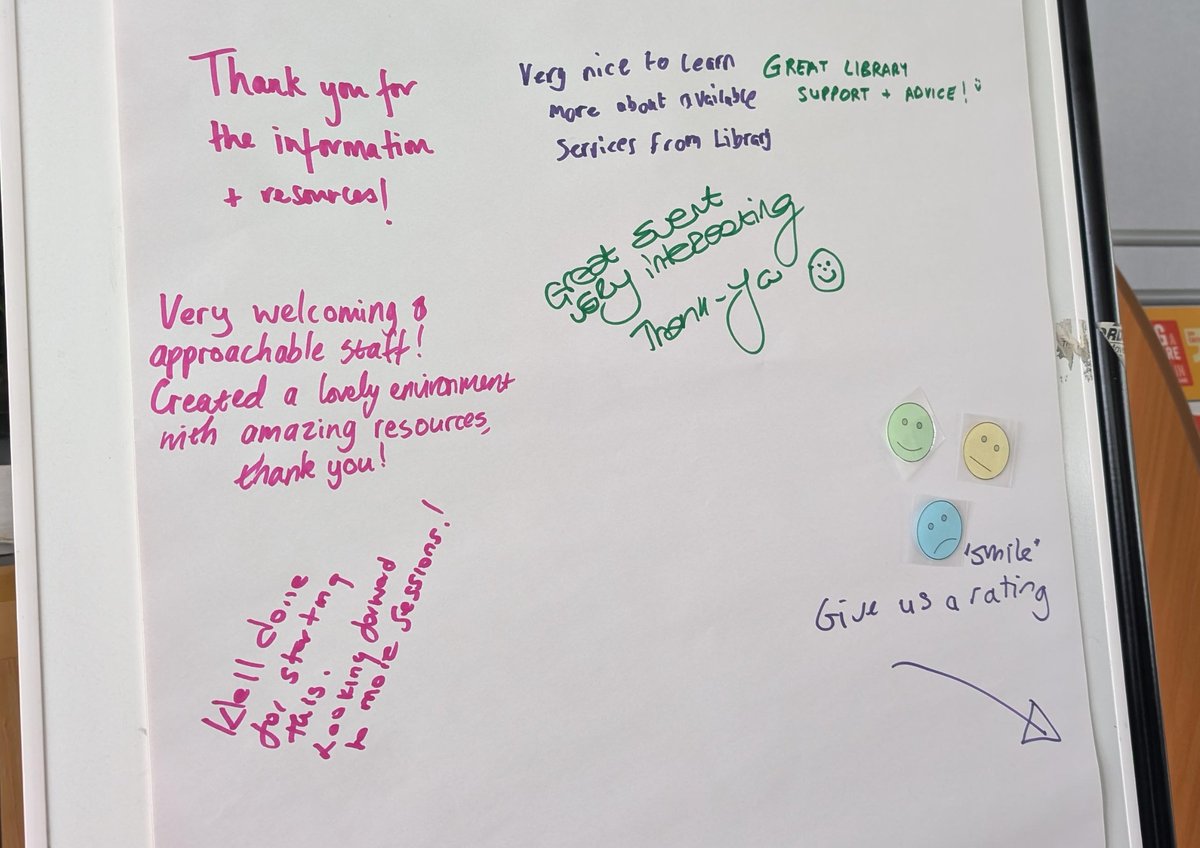 Thank you for
the information
+ resources!
Very nice to learn
more about available
Services from Library
GREAT LIBRARY
SUPPORT + ADVICE!
Great event
very interesting
Thank-you
Very welcoming &
approachable staff!
Created a lovely environment
with amazing resources,
thank you!
Well done
for starting
this.
Looking forward
to more sessions!
"smile"
Give us a rating